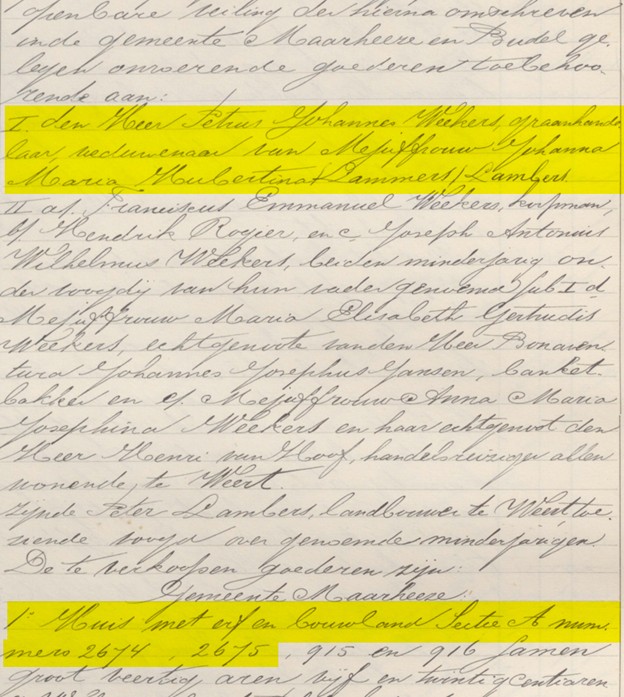 openbare veiling der hierna omschreven
in de gemeente Maarheeze en Budel ge-
legen onroerende goederen toebehoo-
rende aan:
I. den Heer Petrus Johannes Weekers, graanhande-
laar, weduwenaar van Mejuffrouw Johanna
Maria Hubertina Lammers / Lambers
II a/. Franciscus Emmanuel Weekers, koopman,
b/. Hendrik Rogier, en c. Joseph Antonius
Wilhelmus Weekers, beiden minderjarig on-
der voogdij van hun vader genoemd sub I d
Mejuffrouw Maria Elisabeth Gertrudis
Weekers, echtgenoote van den Heer Bonaven
tura Johannes Josephus Jansen, banket-
bakker en e/. Mejuffrouw Anna Maria
Josephina Weekers en haar echtgenoot den
Heer Henri van Hoof, handelsreiziger allen
wonende, te Weert.
zijnde Peter Lambers, landbouwer te Weert, toe-
ziende voogd over genoemde minderjarigen.
De te verkoopen goederen zijn:
Gemeente Maarheeze:
1° Huis met erf en bouwland Sectie A num-
mers 2674, 2675, 915 en 916 samen
groot veertig aren vijf en twintig centiaren